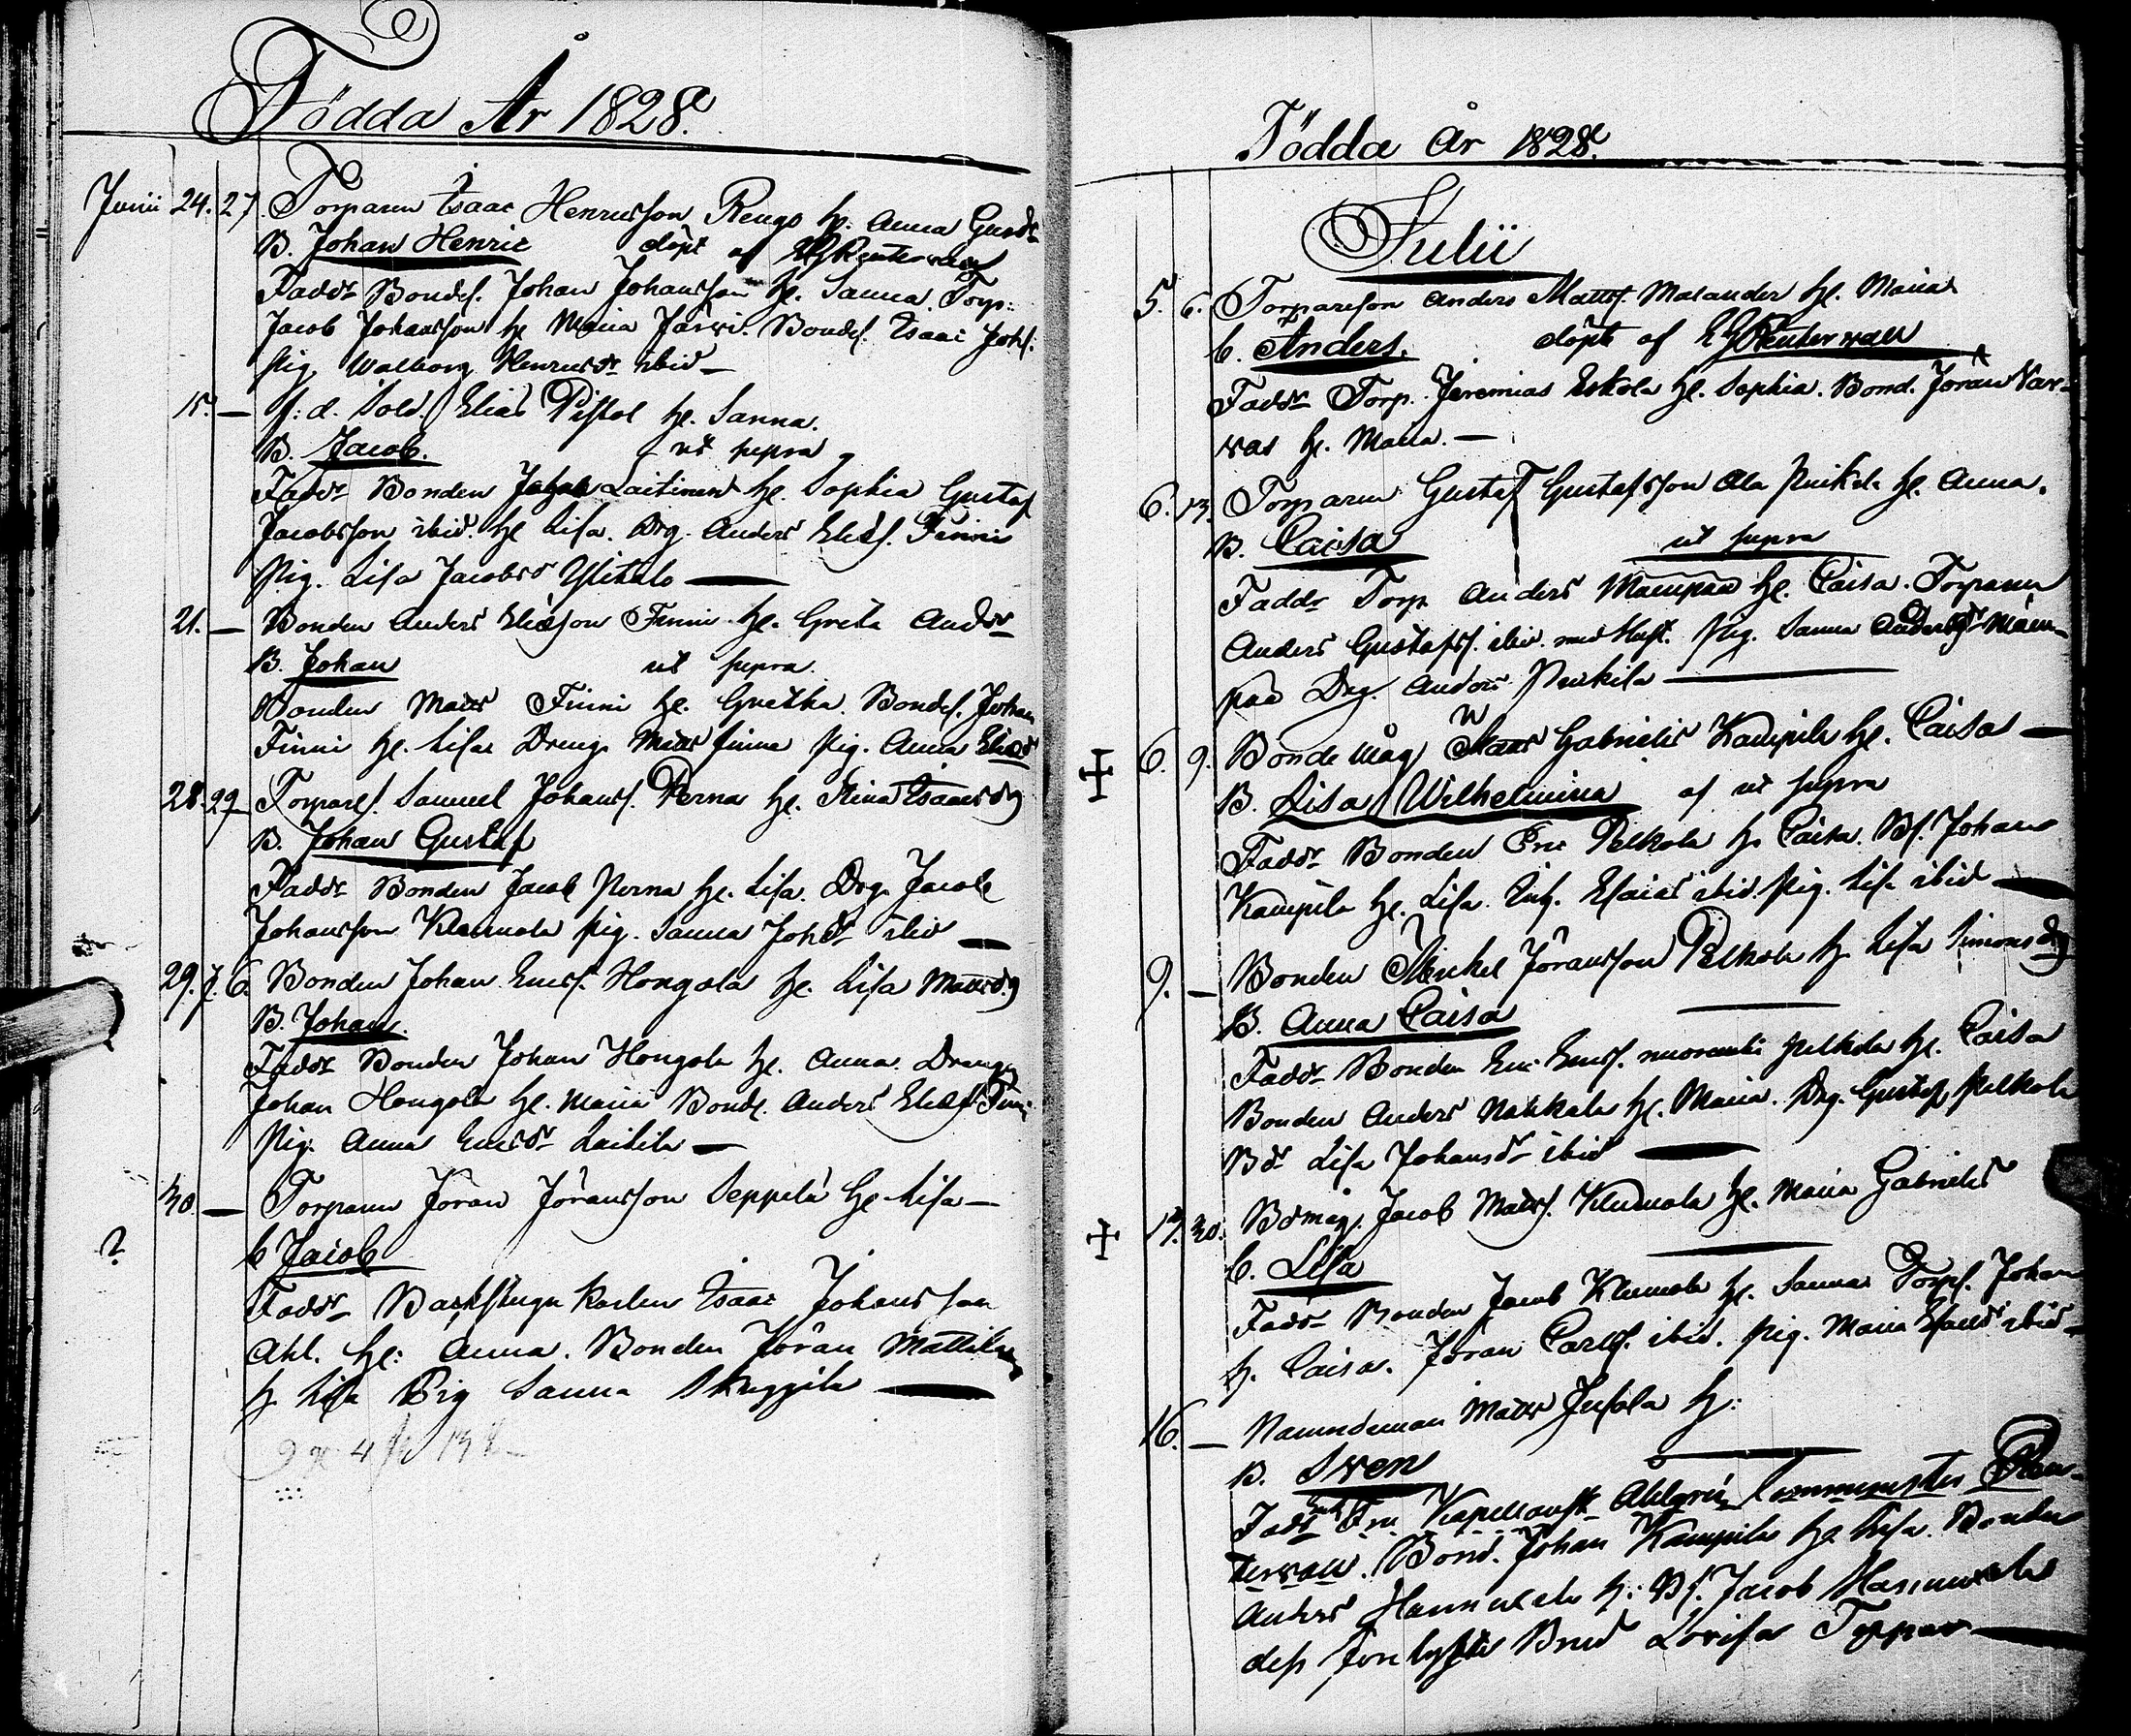 Födda År 1828.
Junii 24. 27. Torparen Isaac Henricsson Rengo h. Anna Gustdr
B. Johan Henric döpt af Reuterwall
Faddr Bondes. Johan Johansson h. Sanna. Torp:
Jacob Johansson h. Maria Järvi. Bondes. Isaac Johs.
Pig. Walborg Henricsdr ibid —
15. — f: d. Sold. Elias Pistol h. Sanna.
B. Jacob. ut supra
Faddr Bonden Laitinen h. Sophia Gustaf
Jacobsson ibid. h. Lisa. Drg. Anders Elias. Finni
Pig. Lisa Jacobsdr Ylitalo —
21. — Bonden Anders Eliasson Finni h. Greta Andsdr
B. Johan ut supra.
Bonden Matts Finni h. Gretha. Bondes. Johan
Finni h. Lisa Dreng. Matts Finni Pig. Anna Eliasd
28. 29 Torpares. Samuel Johanss. Perna h. Stina Isaacsdr
B. Johan Gustaf
Faddr Bonden Jacob Perna h. Lisa. Drg. Jacob
Johansson Klemola Pig. Sanna Johsdr ibid —
29. 7. 6. Bonden Johan Ericss. Hongola h. Lisa Mattsdr
B. Johan.
Faddr Bonden Johan Hongola h. Anna. Drengen
Johan Hongola h. Maria Bonde. Anders Eliass Finni
Pig. Anna Ericsdr Laitila —
30. — Torparen Jöran Jöransson Seppilä h. Lisa —
? b Jacob
Faddr Backstugu Karlen Isaac Johansson
Ahl. h: Anna. Bonden Jöran Mattila
h. Lisa Pig Sanna Skyggila —
Födda år 1828.
Julii
5. 6. Torpareson Anders Matts. Malander h. Maria
b. Anders. döpt af Reuterwall
Faddr Torp. Jeremias Eskola h. Sophia. Bond. Jöran Var-
vas h. Maria. —
6. 13. Torparen Gustaf Gustafsson Ala Puikola h. Anna.
B. Caisa ut supra
Faddr Torp Anders Mampaa h. Caisa. Torparen
Anders Gustafss. ibid. med Hust. Pig. Sanna Andersdr Mam-
paa Drg. Anders
6. 9. Bonde Måg Matts Gabriels Kampila h. Caisa —
B. Lisa Wilhelmina af ut supra
Faddr Bonden Eric Pelkola h. Caisa. Bs. Johan
Kampila h. Lisa. Enk. Esaias ibid. Pig. Lisa ibid —
9. — Bonden Michel Jöransson Pelkola h. Lisa Simonsdr
B. Anna Caisa —
Faddr Bonden Eric Ericss. Pelkola h. Caisa
Bonden Anders Nakkala h. Maria. Drg. Gustaf Pelkola
Bdr Lisa Johansdr ibid —
30. Bdmåg. Jacob Matts. Klemola h. Maria Gabriels
b. Lisa —
Faddr Bonden Jacob Klemola h. Sanna Torps. Johan
h. Caisa. Jöran Carls. ibid. Pig. Maria ibid —
16. — Nämndeman Matts Jussila h:
B. Sven —
Faddr Fru Kapellansk. Ahlgren Comminister Reu-
terwall. Bond. Johan Kampila h. Lisa. Bonden
Anders Hannuxela h: Bs. Jacob Hannuxela
dess Brud Lovisa Toppar —